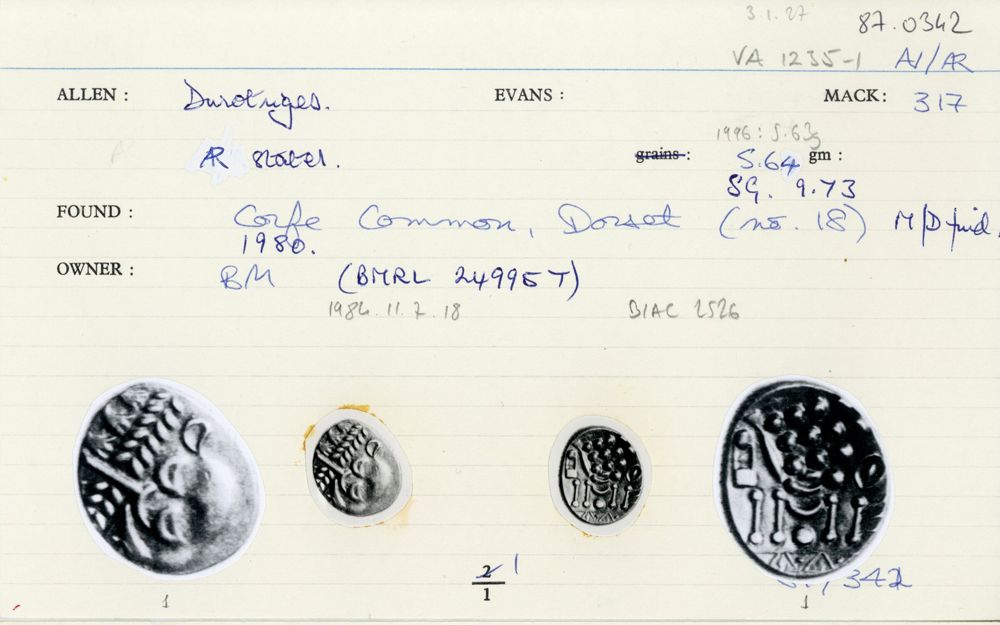 3.1.27
87.0342
VA 1235-1 AV/AR
ALLEN : Durotriges. EVANS : MACK: 317
1996: 5.63g
AR stater. grains : 5.64 gm :
SG. 9.73
FOUND : Corfe Common, Dorset (no. 18) M/D find.
1980.
OWNER : BM (BMRL 24995 T)
1984.11.7.18 BIAC 2526
2 1
1
342
1 1